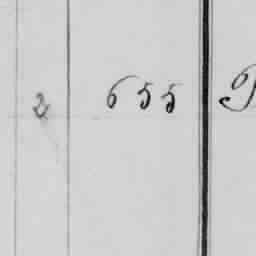 2 655